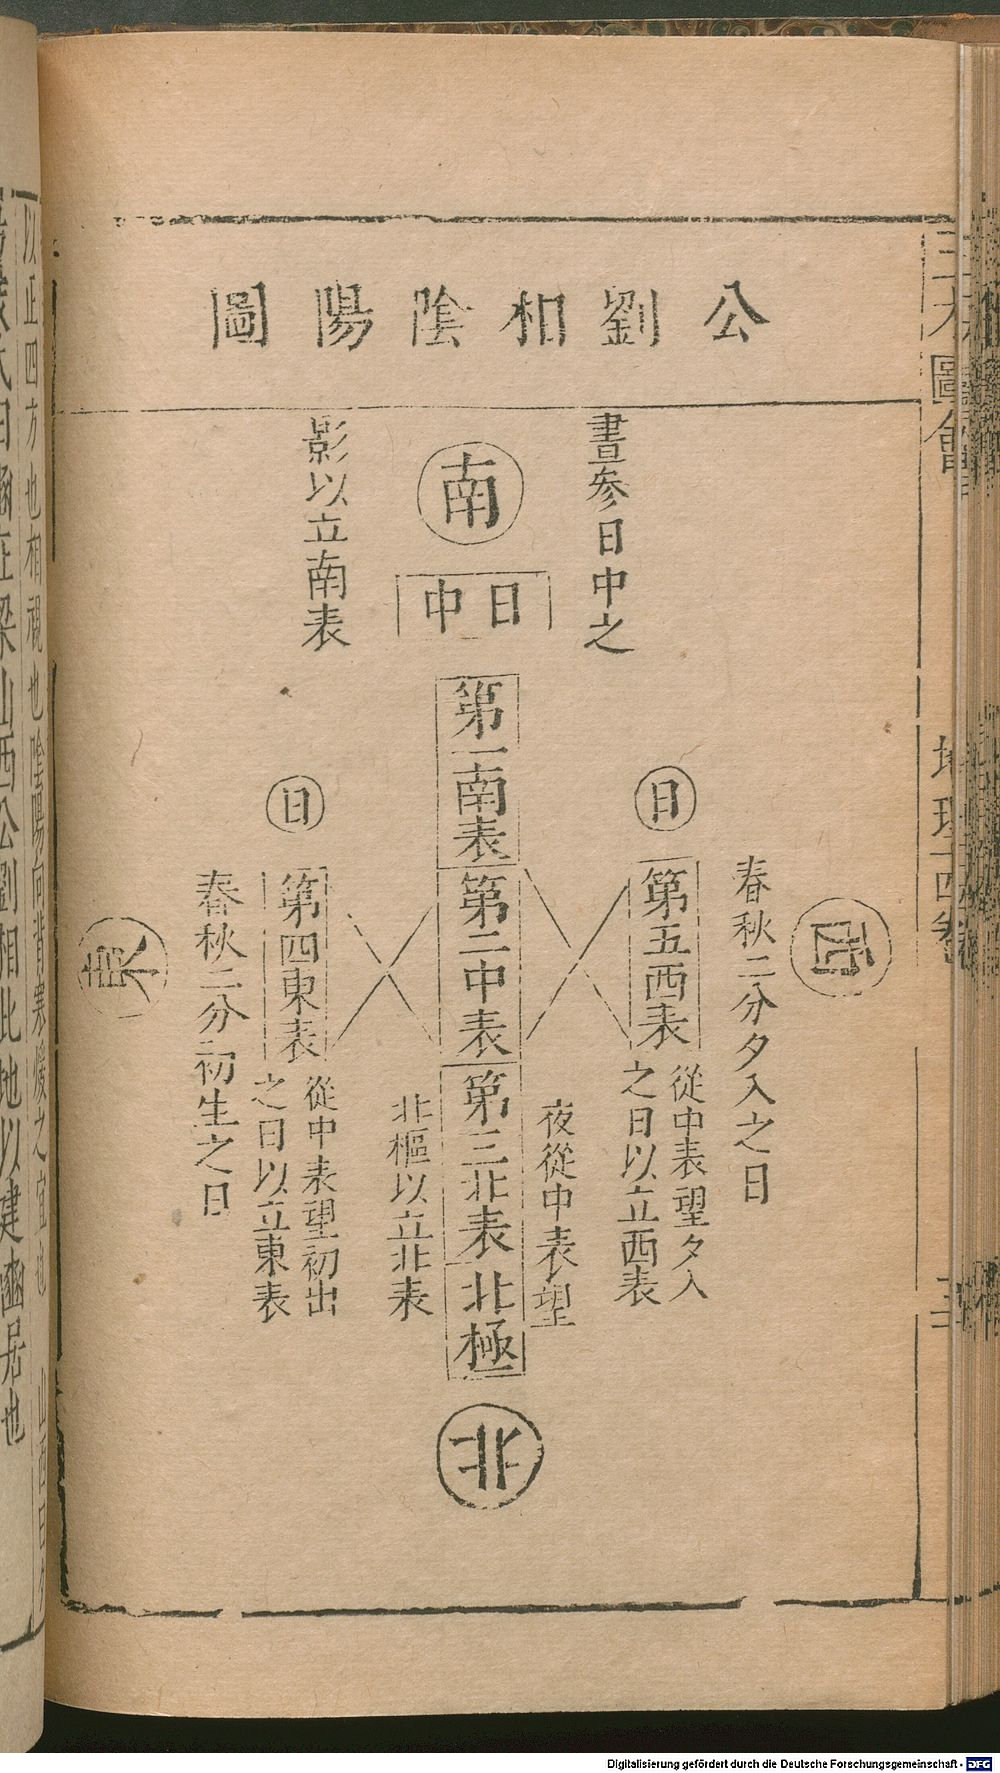 公劉相陰陽圖
晝參日中之
影以立南表
南
日中
第一南表
第二中表
第三北表
北極
北
西
春秋二分夕入之日
日
第五西表
從中表望夕入
之日以立西表
夜從中表望
北樞以立北表
日
第四東表
從中表望初出
之日以立東表
春秋二分初生之日
東
圖會
地理十四卷
以正四方也相視也陰陽向背寒煖之宜也
氏曰豳在梁山西公劉相此地以建豳居也
Digitalisierung gefördert durch die Deutsche Forschungsgemeinschaft - DFG